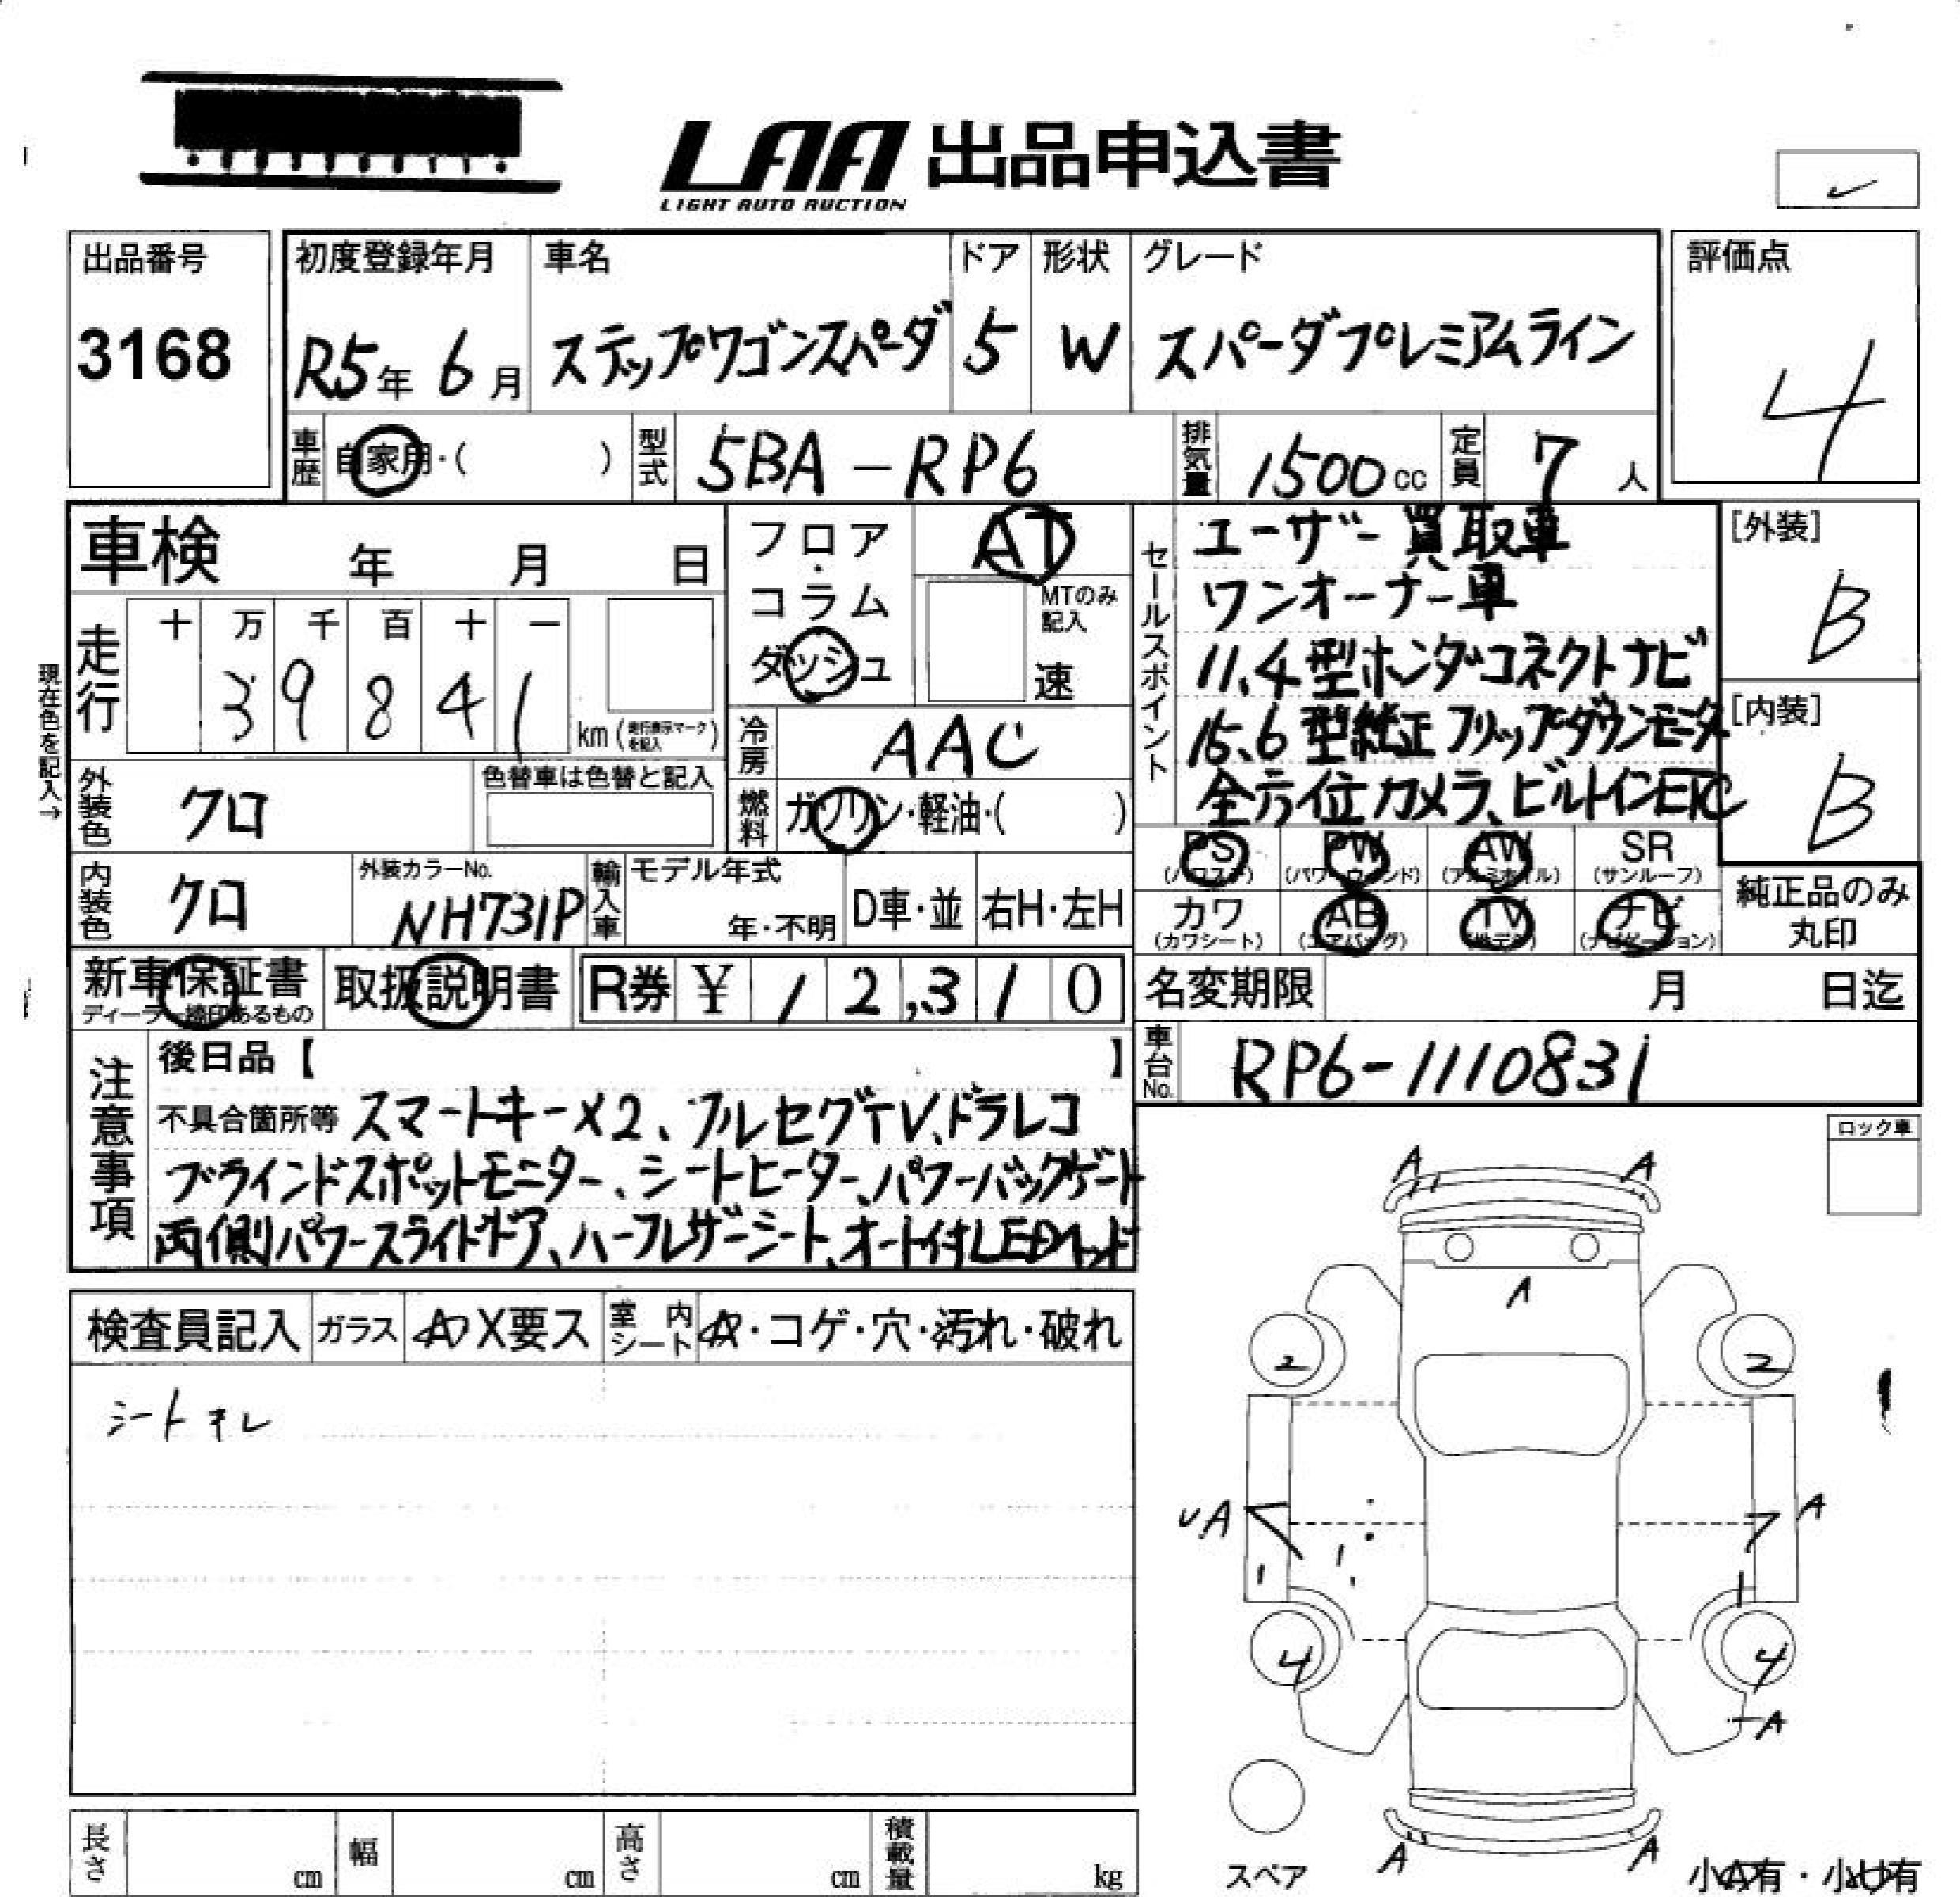 LAA 出品申込書
LIGHT AUTO AUCTION
出品番号
3168
初度登録年月
R5年 6月
車名
ステップワゴンスパーダ
ドア
5
形状
W
グレード
スパーダプレミアムライン
評価点
4
車歴 自家用・( )
型式 5BA-RP6
排気量 1500cc
定員 7人
車検 年 月 日
走行 十 万 千 百 十 一
3 9 8 4 1 km(走行表示マークを記入)
現在色を記入→
フロア・コラム
ダッシュ
AT
MTのみ記入
速
冷房 AAC
燃料 ガソリン・軽油・( )
セールスポイント
ユーザー買取車
ワンオーナー車
11.4型ホンダコネクトナビ
15.6型純正フリップダウンモニタ
全方位カメラ、ビルトインETC
[外装]
B
[内装]
B
外装色 クロ
色替車は色替と記入
内装色 クロ
外装カラーNo.
NH731P
輸入車 モデル年式
年・不明
D車・並
右H・左H
PS (パワステ)
PW (パワーウィンド)
AW (アルミホイル)
SR (サンルーフ)
カワ (カワシート)
AB (エアバッグ)
TV
ナビ (ナビゲーション)
純正品のみ丸印
新車保証書
ディーラー捺印あるもの
取扱説明書
R券 ¥ 12,310
名変期限 月 日迄
車台No. RP6-1110831
注意事項
後日品【 】
不具合箇所等 スマートキーX2、フルセグTV、ドラレコ
ブラインドスポットモニター、シートヒーター、パワーバックゲート
両側パワースライドドア、ハーフレザーシート、オート付LEDヘッド
ロック車
検査員記入
ガラス A X要ス
室内シート ・コゲ・穴・汚れ・破れ
シートキレ
A A
A
2 2
UA A
1 1
4 4
A
A A
スペア
小A有・小U有
長さ cm
幅 cm
高さ cm
積載量 kg